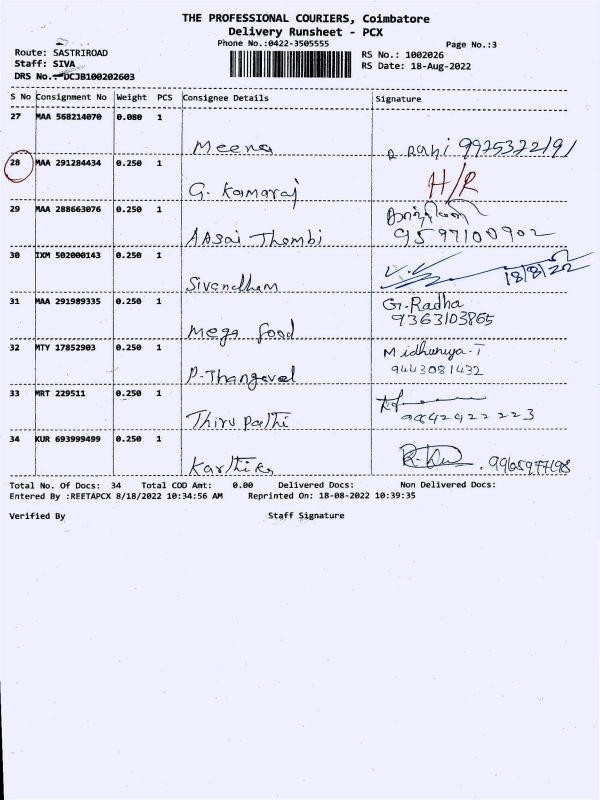 THE PROFESSIONAL COURIERS, Coimbatore
Delivery Runsheet - PCX
Phone No.:0422-3505555
Page No.:3
Route: SASTRIROAD
RS No.: 1002026
Staff: SIVA
RS Date: 18-Aug-2022
DRS No.:DCJB100202603
S No Consignment No Weight PCS Consignee Details Signature
27 MAA 568214070 0.080 1
Meena
R. Rani
28 MAA 291284434 0.250 1
G. Kamaraj H/R
29 MAA 288663076 0.250 1
AAsai Thambi 9597100902
30 IXM 502000143 0.250 1
18/8/22
Sivandham
31 MAA 291989335 0.250 1 G. Radha
Mega food 9363103865
32 MTY 17852903 0.250 1 Midhunya-T
P-Thangavel 9443081432
33 MRT 229511 0.250 1
Thiru Pathi 9842922223
34 KUR 693999499 0.250 1
Karthika
Total No. Of Docs: 34 Total COD Amt: 0.00 Delivered Docs: Non Delivered Docs:
Entered By :REETAPCX 8/18/2022 10:34:56 AM Reprinted On: 18-08-2022 10:39:35
Verified By Staff Signature